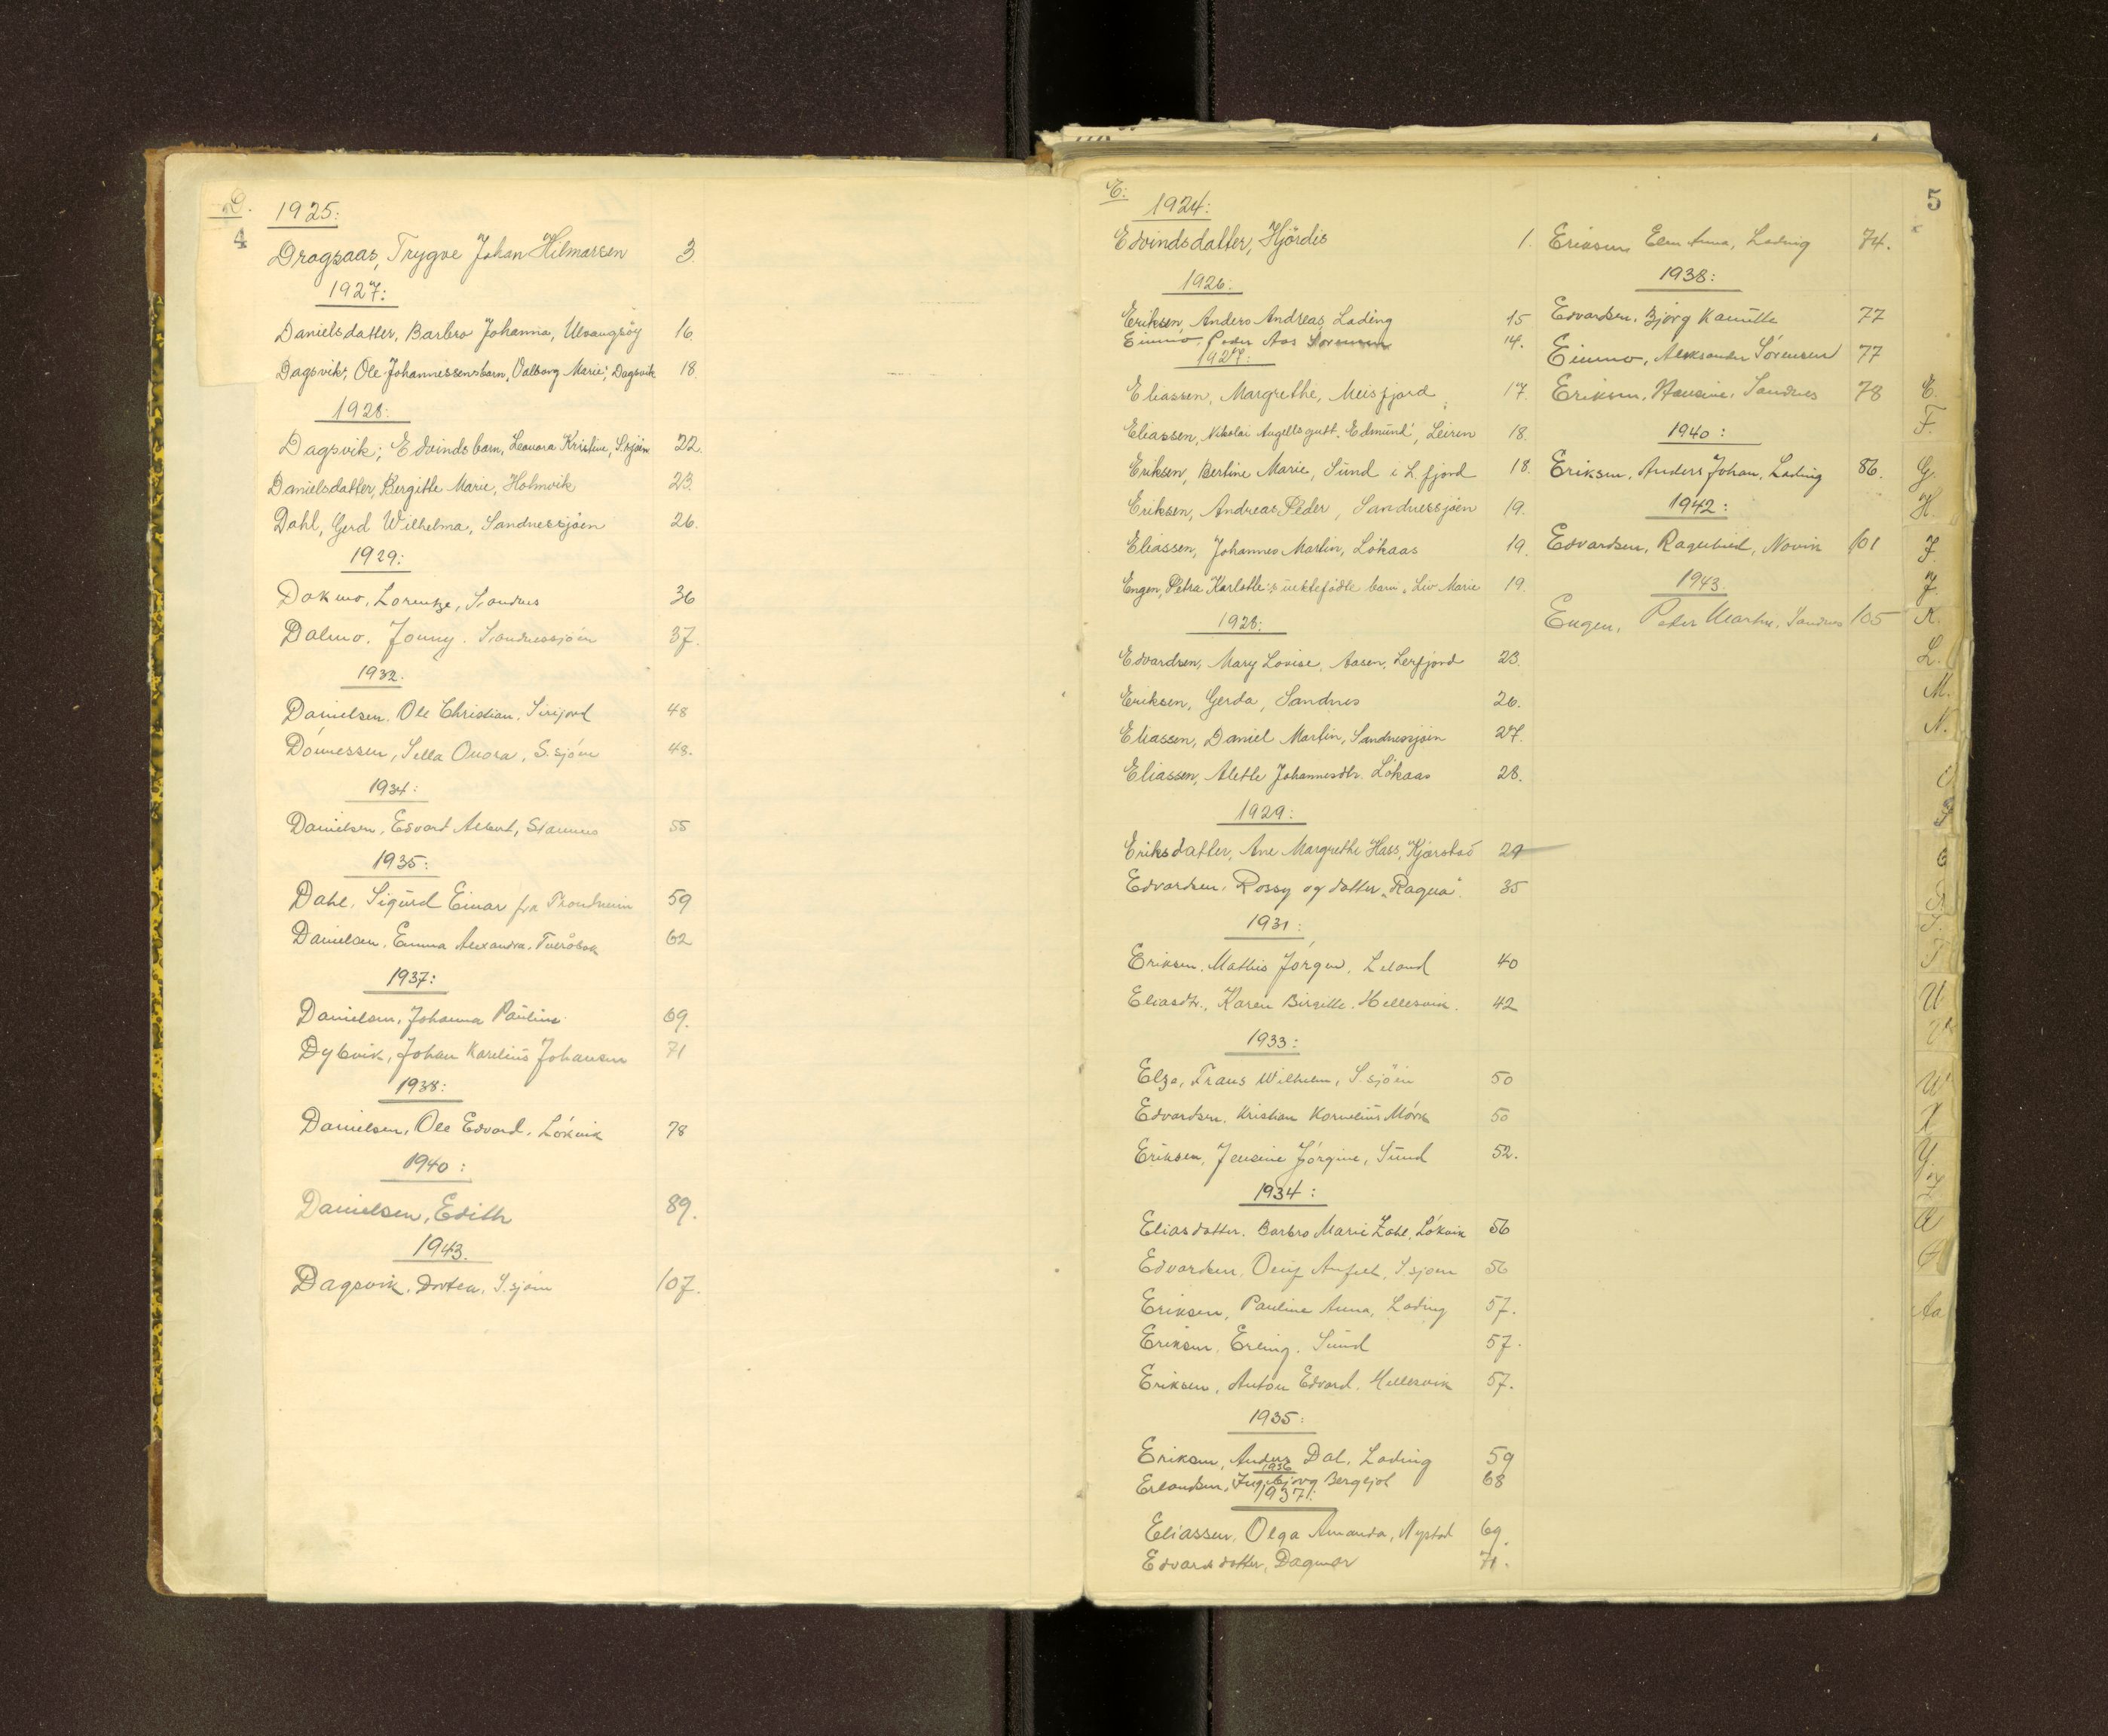 D.
4
1925:
Dragsaas, Trygve Johan Hilmarsen 3.
1927:
Danielsdatter, Barbro Johanna, Ulvangsöy 16.
Dagsvik, Ole Johannessens barn, Valborg Marie, Dagsvik 18.
1928:
Dagsvik, Edvinds barn, Leonora Kristine, S.sjöen 22.
Danielsdatter, Bergitte Marie, Holmvik 23.
Dahl, Gerd Wilhelma, Sandnessjöen 26.
1929:
Dokmo, Lorentze, Sandnes 36
Dalmo, Jonny. Sandnessjöen 37.
1932.
Danielsen, Ole Christian, 48
Dönnessen, Sella Onora, S.sjöen 48.
1934:
Danielsen, Edvart Albert, 55
1935:
Dahl, Sigurd Einar fra Trondheim 59
Danielsen, Emma Alexandra, Tveråbak 62
1937:
Danielsen, Johanna Pauline 69.
Dybvik, Johan Karelius Johansen 71
1938:
Danielsen, Ole Edvard, Lökvik 78
1940:
Danielsen, Edith 89.
1943.
Dagsvik, Dortea, S.sjöen 107.
E:
5
1924:
Edvindsdatter, Hjördis 1.
1926:
Eriksen, Anders Andreas, Lading 15
Einmo, Peder Aas Sörensen 14.
1927:
Eliassen, Margrethe, Meisfjord 17.
Eliassen, Nikolai Angells gutt "Edmund", Leiren 18.
Eriksen, Berline Marie, Sund i L.fjord 18.
Eriksen, Andreas Peder, Sandnessjöen 19.
Eliassen, Johannes Martin, Lökaas 19.
Engen, Petra Karlotte's uektefödte barn, Liv Marie 19.
1928:
Edvardsen, Mary Lovise, Aasen, Lerfjord 23.
Eriksen, Gerda, Sandnes 26.
Eliassen, Daniel Martin, Sandnessjöen 27.
Eliassen, Aletle Johannesdtr. Lökaas 28.
1929:
Eriksdatter, Ane Margrethe Hass, Kjærstad 29
Edvardsen, Rossy og datter "Ragna". 35
1931:
Eriksen, Mathis Jörgen, Leland 40
Eliasdtr., Karen Birgitte. Hellesvik. 42
1933:
Elze, Frans Wilhelm, S.sjöen 50
Edvardsen, Kristian Kornelius Mörk 50
Eriksen, Jensine Jörgine, Sund 52.
1934:
Eliasdatter. Barbro Marie Zahl, Lökvik 56
Edvardsen, S.sjoen 56
Eriksen, Pauline Anna, Lading 57.
Eriksen, Erling. Sund 57.
Eriksen, Anton Edvard. Hellesvik 57.
1935:
Eriksen, Anders Dal, Lading 59
1936
Erlandsen, Ingebjörg Bergljot 68
1937:
Eliassen, Olga Amanda, Nystad 69.
Edvardsdatter, Dagmar 71.
Eriksen Elen Anna, Lading 74.
1938:
Edvardsen, Bjørg Kamilla 77
Einmo, Aleksander Sörensen 77
Eriksen, Hansine, Sandnes 78
1940:
Eriksen, Anders Johan, Lading 86.
1942:
Edvardsen, Ragnhild, Novik 101
1943.
Engen, Peder Martin, Sandnes 105
E.
F.
G.
H.
I.
J.
K.
L.
M.
N.
U
W
X
Y.
Z
Aa